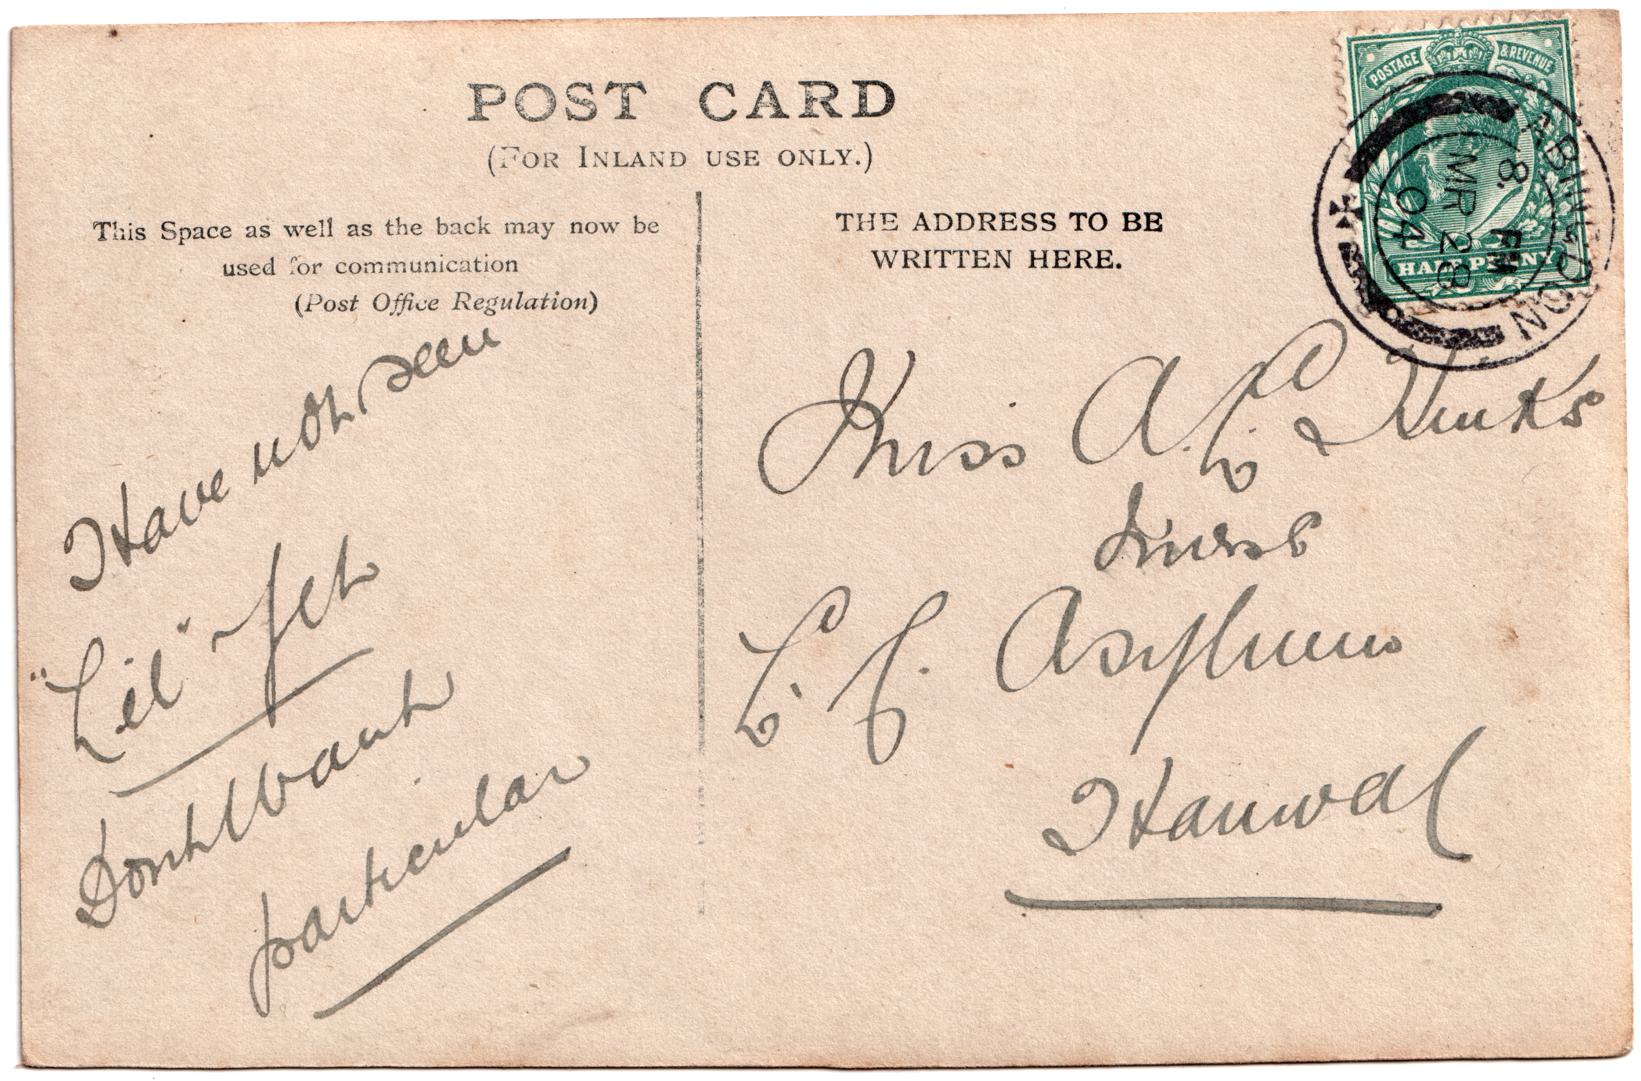 POST CARD
(FOR INLAND USE ONLY.)
This Space as well as the back may now be
used for communication
(Post Office Regulation)
THE ADDRESS TO BE
WRITTEN HERE.
POSTAGE & REVENUE
HALFPENNY
ABINGDON
8. PM
MR 28
04
Have not seen
"Lil" yet
Dont want
particular
Miss A. L. Hinks
Nurse
L. C. Asylum
Hanwell